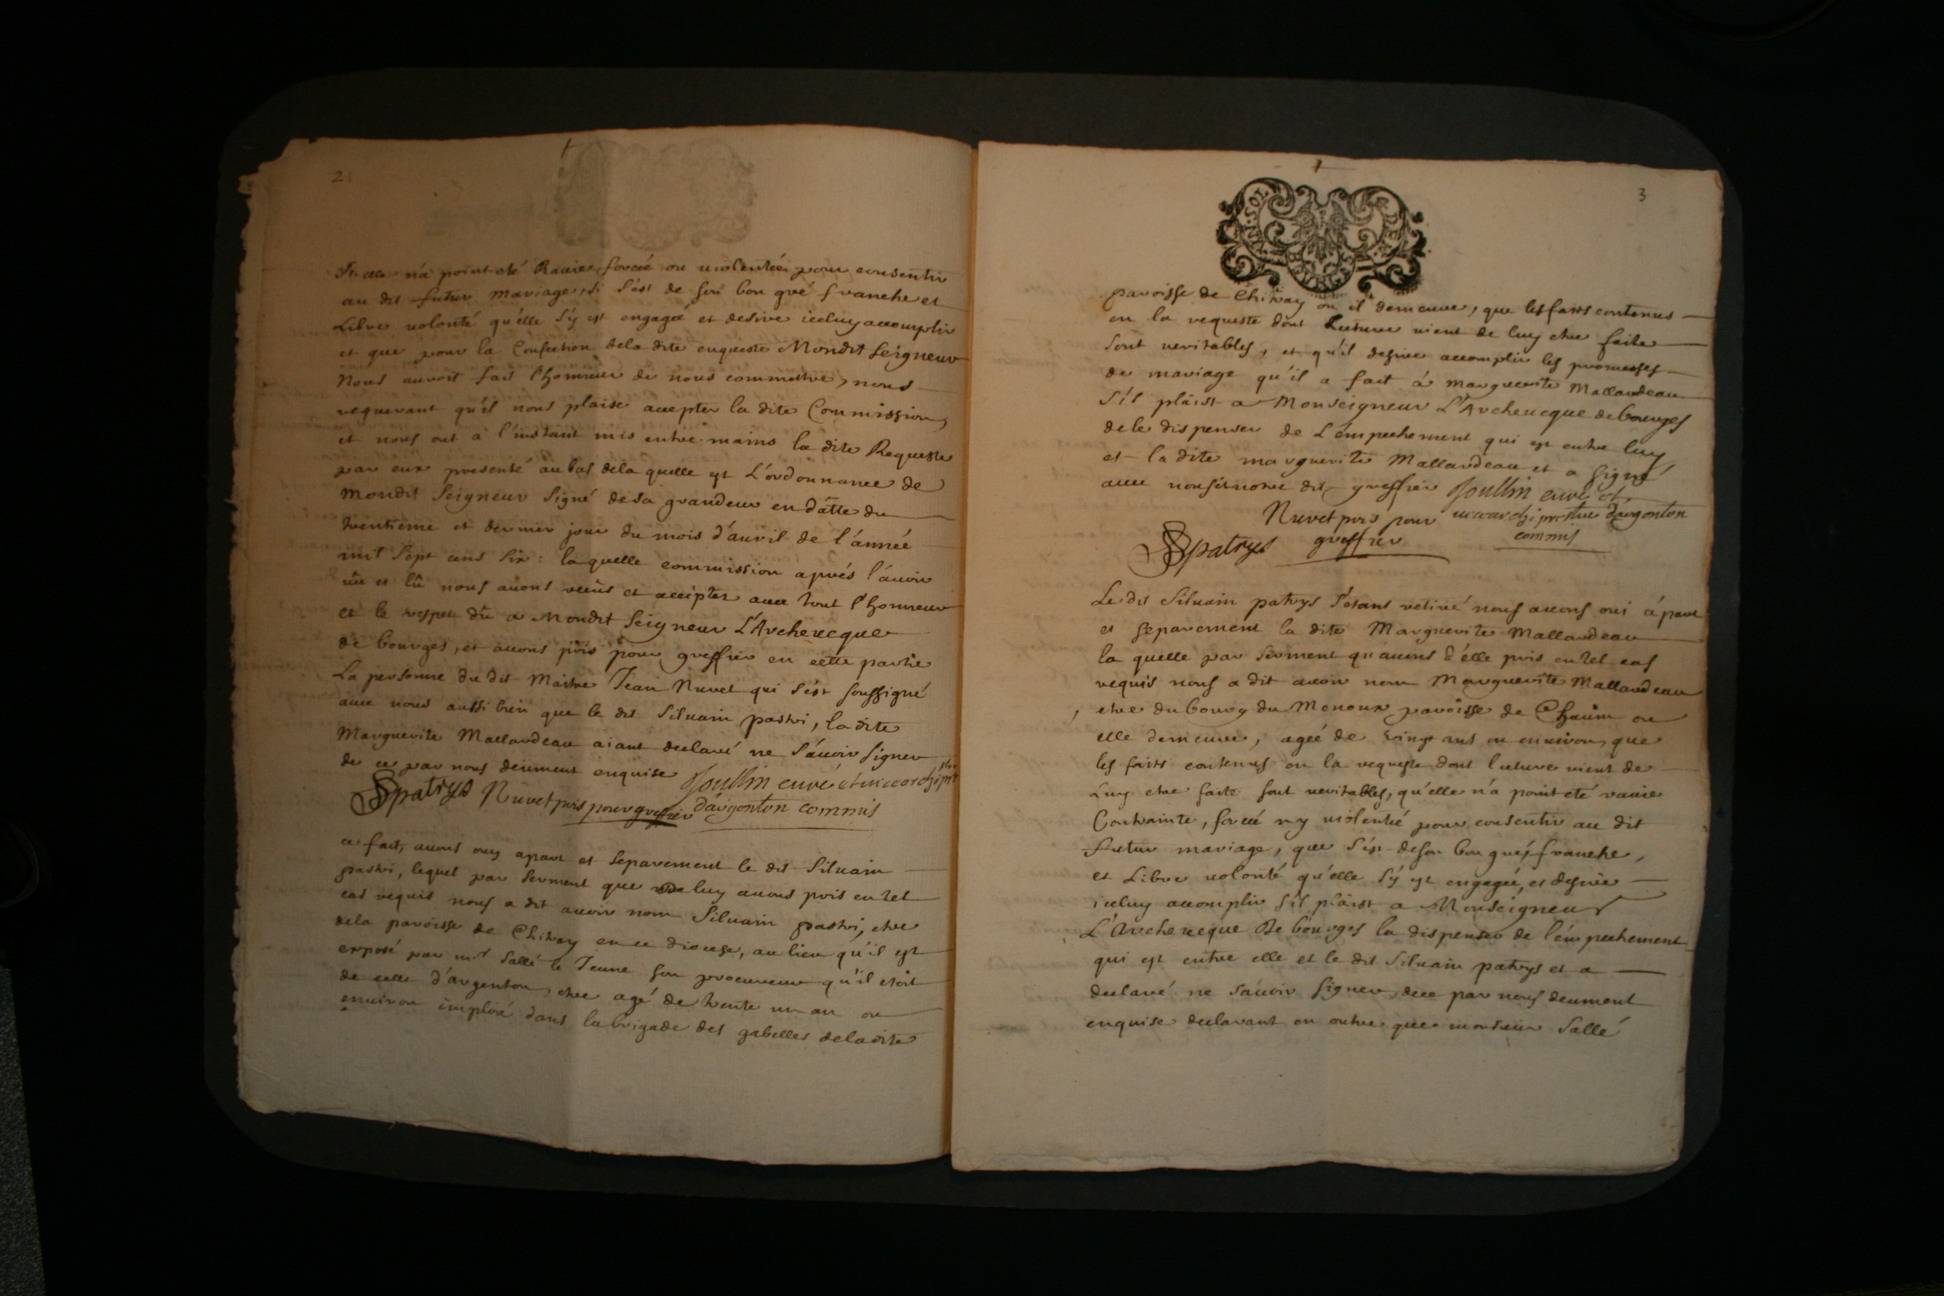 2
Si elle n'a point eté Ravie, forcée ou violentée pour consentir
au dit futur mariage, si s'est de son bon gré franche et
Libre volonté qu'elle s'y est engagée et desire icelluy accomplir
et que pour la Confection dela dite enqueste Mondit seigneur
Nous auroit fait l'honneur de nous commettre, nous
requerant qu'il nous plaise accepter la dite Commission,
et nous ont a l'instant mis entre mains la dite Requeste
par eux presenté au bas dela quelle est L'ordonnance de
Mondit Seigneur Signé de sa grandeur en datte du
trentieme et dernier jour du mois d'auril de l'année
mil sept cens six : laquelle commission aprés l'avoir
vûe et lû nous auons receus et accepter auec tout l'honneur
et le respec dû a Mondit Seigneur L'Archeuecque
de bourges, et auons pris pour greffier en cette partie
La personne du dit Maistre Jean Nuret qui s'est soussigné
auec nous aussi bien que le dit Siluain pastri, la dite
Marguerite Mallardeau aiant declaré ne sçauoir signer
de ce par nous deument enquise Joullin curé et vicearchiptre
SPatrys Nuret pris pour greffier d'argenton commis
ce fait, auons ouy apart et separement le dit Siluain
pastri, lequel par serment que de luy auons pris en tel
cas requis nous a dit auoir nom Siluain pastri, etre
dela paroisse de Chitray en ce diocese, au lieu qu'il est
exposé par mr Sallé le Jeune son procureur qu'il etoit
de celle d'argenton, etre agé de trente un an ou
enuiron emploié dans la brigade des gabelles de la dite
3
paroisse de Chitray ou il demeure, que les faits contenus
en la requeste dont Lecture vient de luy etre faite
sont veritables, et qu'il desire accomplir les promesses
de mariage qu'il a fait á marguerite Mallardeau
s'il plaist a Monseigneur L'Archeuecque de bourges
de le dispenser de L'empechement qui est entre luy
et la dite marguerite Mallardeau et a signé
auec nous et notre dit greffier Joullin curé et
Nuret pris pour vicearchiprestre d'argonton
SPatrys greffier commis
Le dit Siluain patrys s'etant retiré nous auons oui á part
et separement la dite Marguerite Mallardeau
la quelle par serment qu'auons d'elle pris en tel cas
requis nous a dit auoir nom Marguerite Mallardeau
, etre du bourg du Menoux paroisse de Chaim ou
elle demeure, agée de vingt ans ou enuiron, que
les faits contenus en la requeste dont lecture vient de
Luy etre faite sont veritables, qu'elle n'a point eté ravie
Contrainte, forcée n'y violentée pour consentir au dit
Futur mariage, que s'est de son bon gré, franche,
et Libre volonté qu'elle s'y est engagée, et desire
icelluy accomplir s'il plaist a Monseigneur
L'Archeuecque De bourges la dispenser de l'empechement
qui est entre elle et le dit Siluain patrys et a
declaré ne sçauoir signer, de ce par nous deument
enquise declarant en outre que monsieur Sallé